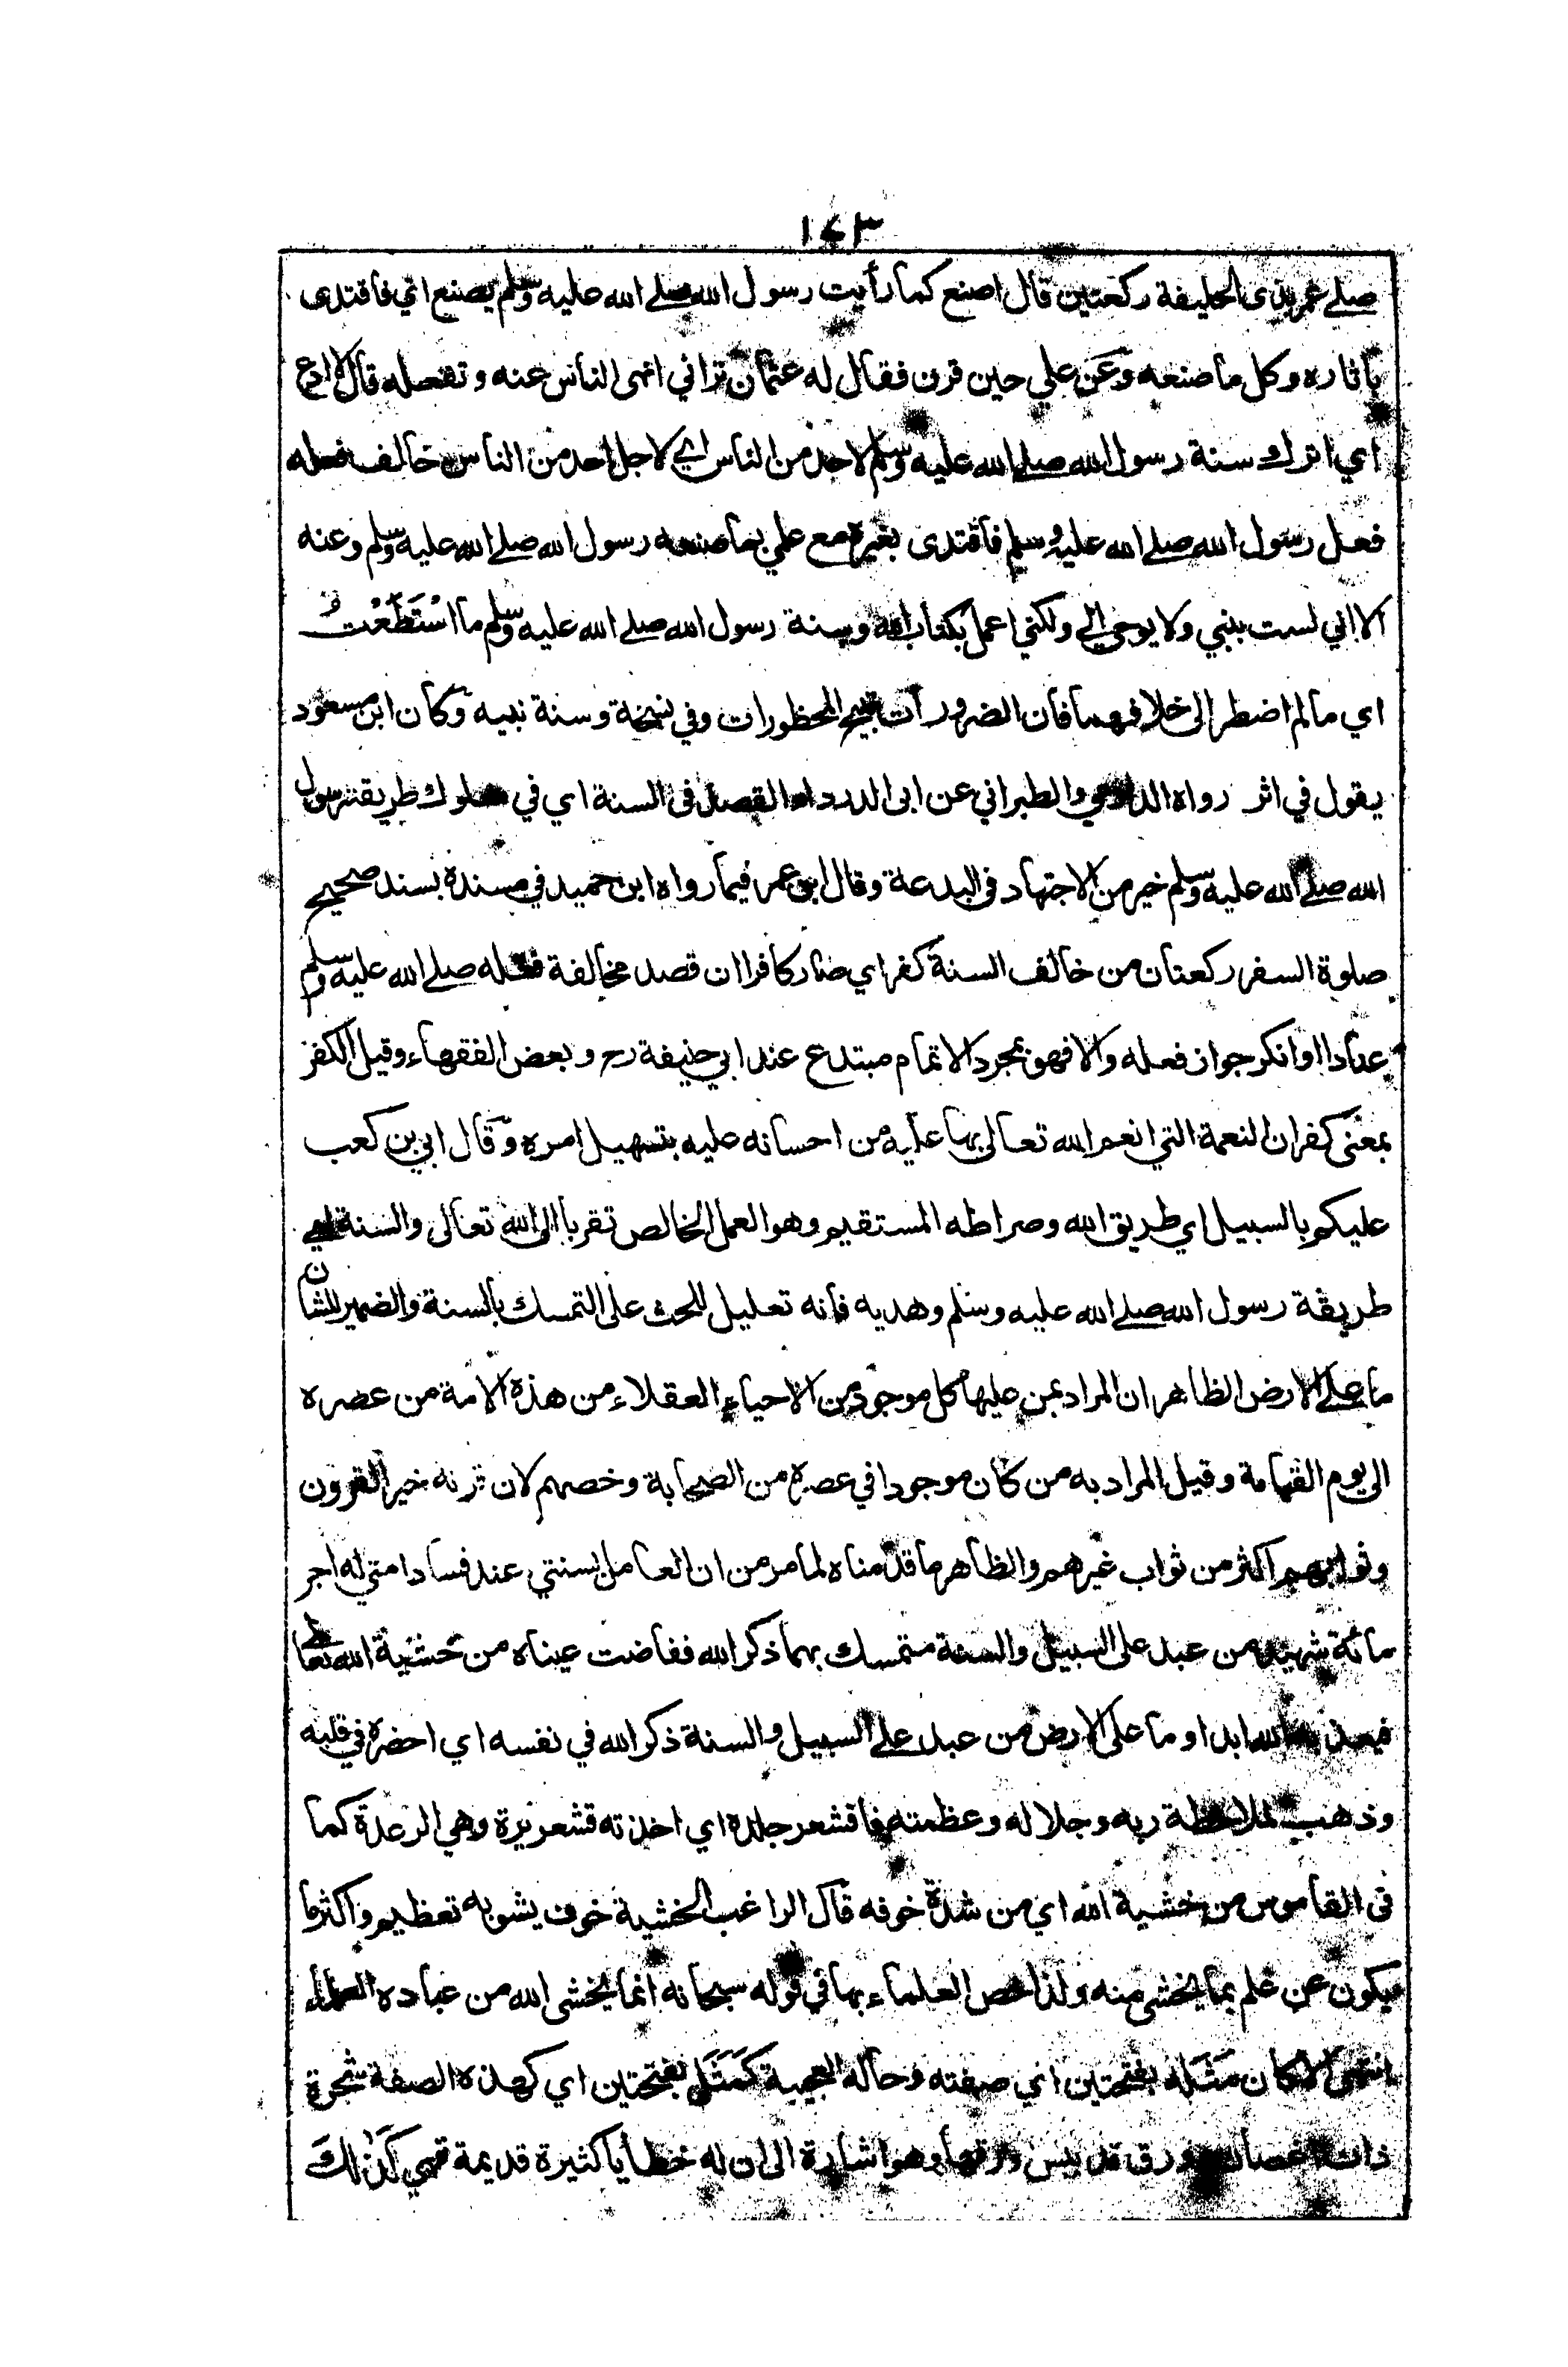 ١٤٣
صلے عمر بذی الحلیفة رکعتین قال اصنع کما رأیت رسول الله صلے الله علیه وسلم یصنع اي فاقتدی
بآثاره وکل ما صنعه وعن علي حین قرن فقال له عثمان تراني انهی الناس عنه وتفعله قال لا ادع
اي اترك سنة رسول الله صلے الله علیه وسلم لاحد من الناس اي لاجل احد من الناس خالف فعله
فعل رسول الله صلے الله علیه وسلم فاقتدی بغیره مع علمي بما صنعه رسول الله صلے الله علیه وسلم وعنه
الا اني لست بنبي ولا یوحی الي ولکني اعمل بکتاب الله وسنة رسول الله صلے الله علیه وسلم ما اسْتَطَعْتُ
اي مالم اضطر الی خلافهما فان الضرورات تبیح المحظورات وفي نسخة وسنة نبیه وکان ابن مسعود
یقول في اثر رواه الدارمي والطبراني عن ابی الدرداء القصد فی السنة اي في سلوك طریقة رسول
الله صلے الله علیه وسلم خیر من الاجتهاد فی البدعة وقال ابن عمر فیما رواه ابن حمید في مسنده بسند صحیح
صلوة السفر رکعتان من خالف السنة کفر اي صار کافرا ان قصد مخالفة فعله صلے الله علیه وسلم
عنادا او انکر جواز فعله والا فهو بمجرد الاتمام مبتدع عند ابي حنیفة رح وبعض الفقهاء وقیل الکفر
بمعنی کفران النعمة التي انعم الله تعالی بها علیه من احسانه علیه بتسهیل امره وقال ابي بن کعب
علیکم بالسبیل اي طریق الله وصراطه المستقیم وهو العمل الخالص تقربا الی الله تعالی والسنة اي
طریقة رسول الله صلے الله علیه وسلم وهدیه فانه تعلیل للحث علی التمسك بالسنة والضمیر للشان
ما علے الارض الظاهر ان المراد بمن علیها کل موجود من الاحیاء العقلاء من هذه الامة من عصره
الی یوم القیامة وقیل المراد به من کان موجودا في عصره من الصحابة وخصهم لان قرنه خیر القرون
وثوابهم اکثر من ثواب غیرهم والظاهر ما قدمناه لما مر من ان العامل بسنتي عند فساد امتي له اجر
مائة شهید من عبد علی السبیل والسنة متمسك بهما ذکر الله ففاضت عیناه من خشیة الله تعالی
فیعذبه الله ابدا و ما علی الارض من عبد علے السبیل والسنة ذکر الله في نفسه اي احضره في قلبه
وذهب لملاحظة ربه وجلاله وعظمته فاقشعر جلده اي اخذته قشعریرة وهي الرعدة کما
فی القاموس من خشیة الله اي من شدة خوفه قال الراغب الخشیة خوف یشوبه تعظیم واکثر ما
یکون عن علم بما یخشی منه ولذا خص العلماء بها في قوله سبحانه انما یخشی الله من عباده العلماء
انتهی الا کان مَثَله بفتحتین اي صفته وحاله العجیبة کَمَثَلِ بفتحتین اي کهذه الصفة شجرة
ذات اغصان وورق قد یبس ورقها وهو اشارة الی ان له خطایا کثیرة قدیمة فهي کَذٰلكَ